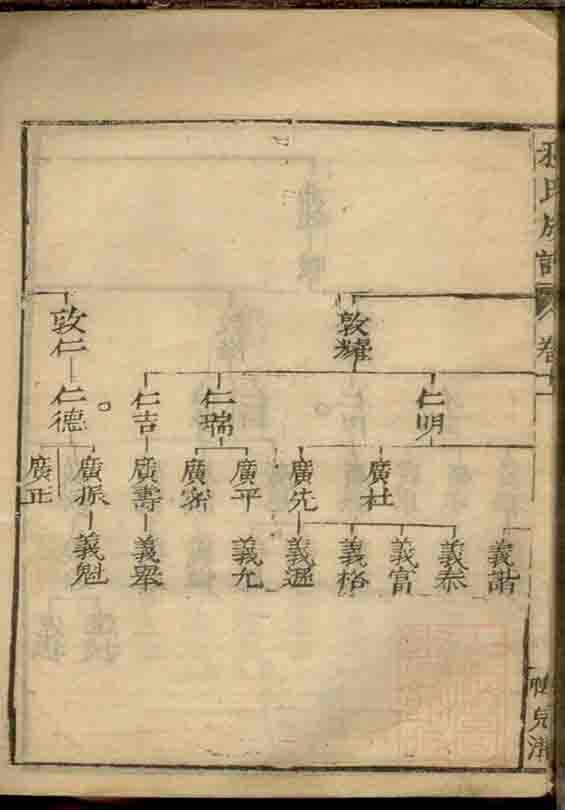 氏族譜
卷
敦耀
敦仁
仁明
仁瑞
仁吉
仁德
廣杜
廣先
廣平
廣密
廣壽
廣振
廣正
義諧
義泰
義富
義格
義遜
義允
義舉
義魁